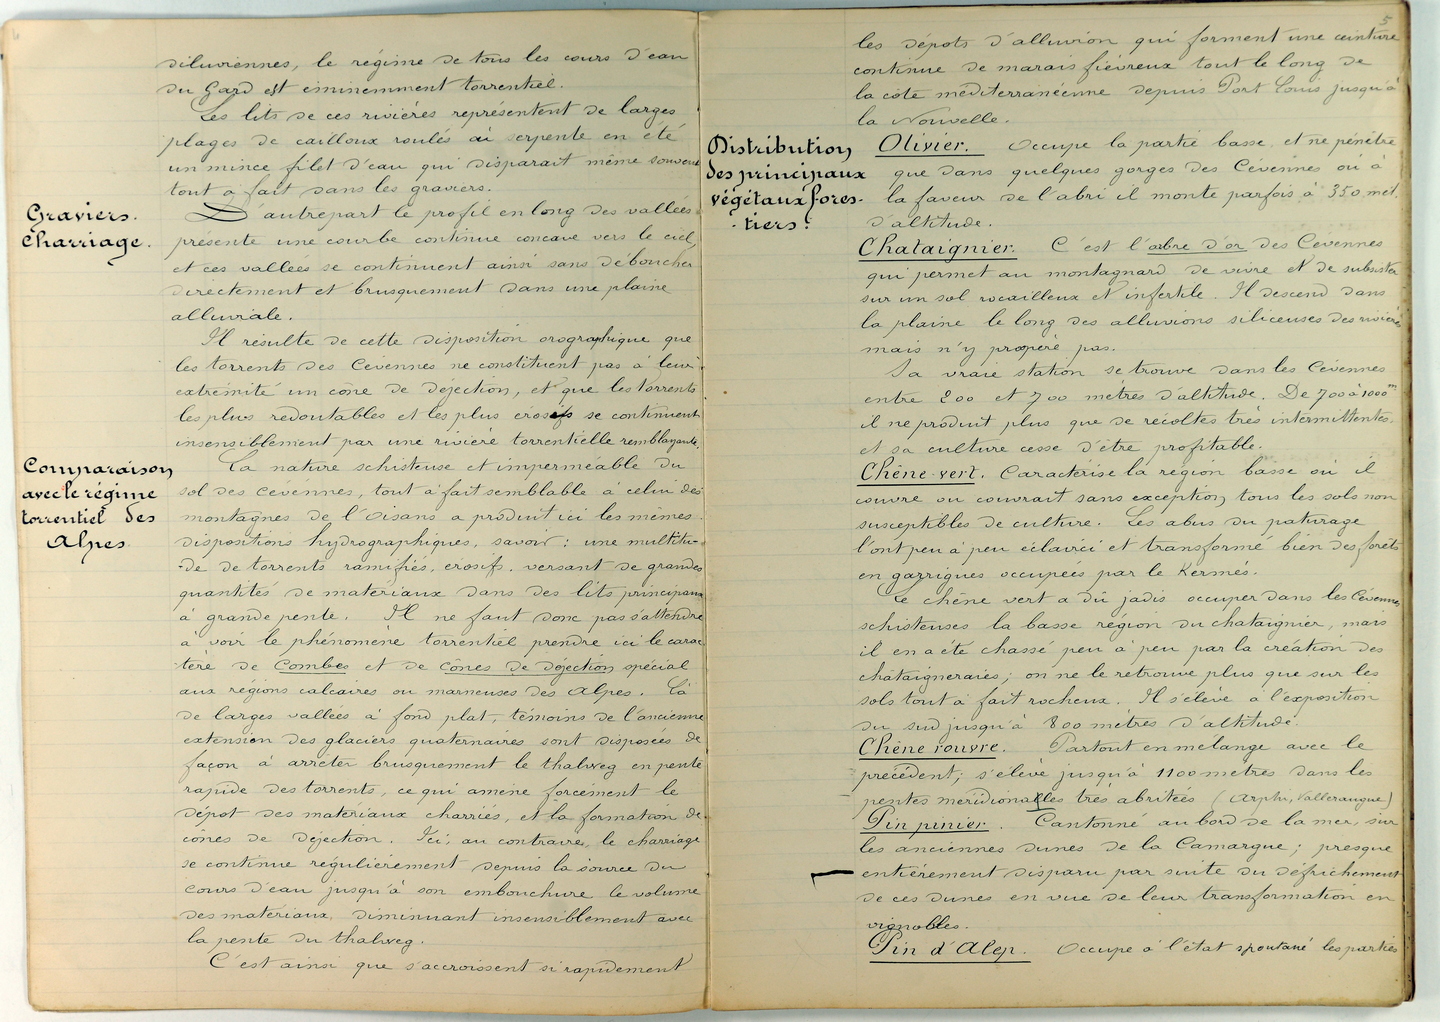 diluviennes, le régime de tous les cours d'eau
du Gard est éminemment torrentiel.
Les lits de ces rivières représentent de larges
plages de cailloux roulés où serpente en été
un mince filet d'eau qui disparait même souvent
tout à fait dans les graviers.
Graviers.
Charriage.
D'autre part le profil en long des vallées
présente une courbe continue concave vers le ciel,
et ces vallées se continuent ainsi sans déboucher
directement et brusquement dans une plaine
alluviale.
Il résulte de cette disposition orographique que
les torrents des Cévennes ne constituent pas à leur
extrémité un cône de déjection, et que les torrents
les plus redoutables et les plus érosifs se continuent
insensiblement par une rivière torrentielle remblayante.
Comparaison
avec le régime
torrentiel des
Alpes.
La nature schisteuse et imperméable du
sol des Cévennes, tout à fait semblable à celui des
montagnes de l'Oisans a produit ici les mêmes
dispositions hydrographiques, savoir : une multitu-
-de de torrents ramifiés, érosifs, versant de grandes
quantités de matériaux dans des lits principaux
à grande pente. Il ne faut donc pas s'attendre
à voir le phénomène torrentiel prendre ici le carac
tère de Combes et de cônes de déjection spécial
aux régions calcaires ou marneuses des Alpes. Là
de larges vallées à fond plat, témoins de l'ancienne
extension des glaciers quaternaires sont disposées de
façon à arrêter brusquement le thalweg en pente
rapide des torrents, ce qui amène forcément le
dépôt des matériaux charriés, et la formation de
cônes de déjection. Ici, au contraire, le charriage
se continue régulièrement depuis la source du
cours d'eau jusqu'à son embouchure le volume
des matériaux, diminuant insensiblement avec
la pente du thalweg.
C'est ainsi que s'accroissent si rapidement
5
les dépots d'alluvion qui forment une ceinture
continue de marais fiévreux tout le long de
la côte méditerranéenne depuis Port Louis jusqu'à
la Nouvelle.
Distribution
des principaux
végétaux fores-
-tiers:
Olivier. Occupe la partie basse, et ne pénètre
que dans quelques gorges des Cévennes où à
la faveur de l'abri il monte parfois à 350 mèt.
d'altitude.
Chataignier. C'est l'arbre d'or des Cévennes
qui permet au montagnard de vivre et de subsister
sur un sol rocailleux et infertile. Il descend dans
la plaine le long des alluvions siliceuses des rivières
mais n'y prospère pas.
Sa vraie station se trouve dans les Cévennes
entre 200 et 700 mètres d'altitude. De 700 à 1000m
il ne produit plus que de récoltes très intermittentes,
et sa culture cesse d'être profitable.
Chêne-vert. Caractérise la région basse où il
couvre ou couvrait sans exception tous les sols non
susceptibles de culture. Les abus du paturage
l'ont peu à peu éclairci et transformé bien des forêts
en garrigues occupées par le Kermès.
Le chêne vert a dû jadis occuper dans les Cévennes
schisteuses la basse région du chataignier, mais
il en a été chassé peu à peu par la création des
châtaigneraies; on ne le retrouve plus que sur les
sols tout à fait rocheux. Il s'élève à l'exposition
du sud jusqu'à 800 mètres d'altitude.
Chêne rouvre. Partout en mélange avec le
précédent; s'élève jusqu'à 1100 metres dans les
pentes méridionales très abritées (Arphi, Valleraugue)
Pin pinier. Cantonné au bord de la mer, sur
les anciennes dunes de la Camargue; presque
entièrement disparu par suite du défrichement
de ces dunes en vue de leur transformation en
vignobles.
Pin d'Alep. Occupe à l'état spontané les parties